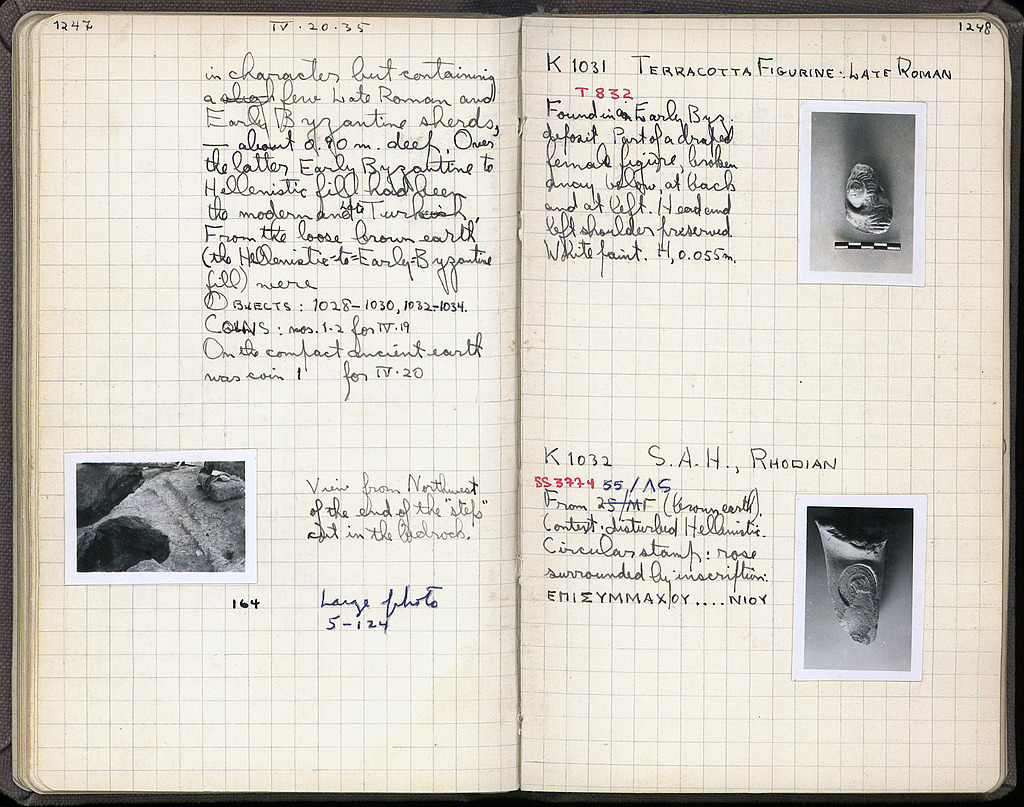 1247
IV·20·35
in character but containing
a few Late Roman and
Early Byzantine sherds,
— about 0.90 m. deep. Over
the latter Early Byzantine to
Hellenistic fill had been
the modern and Turkish.
From the loose brown earth
(the Hellenistic-to-Early-Byzantine
fill) were
OBJECTS: 1028–1030, 1032–1034.
COINS: nos. 1-2 for IV·19
On the compact ancient earth
was coin 1 for IV·20
View from Northwest
of the end of the "step"
cut in the bedrock.
164
Large photo
5–124
1248
K 1031 TERRACOTTA FIGURINE: LATE ROMAN
T 832
Found in Early Byz.
deposit. Part of a draped
female figure, broken
away below, at back
and at left. Head and
left shoulder preserved.
White paint. H, 0.055m.
K 1032 S.A.H., RHODIAN
SS 3774 55/ΛΣ
From 25/ΜΓ (brown earth).
Context: disturbed Hellenistic.
Circular stamp: rose
surrounded by inscription:
ΕΠΙΣΥΜΜΑΧΟΥ....ΝΙΟΥ